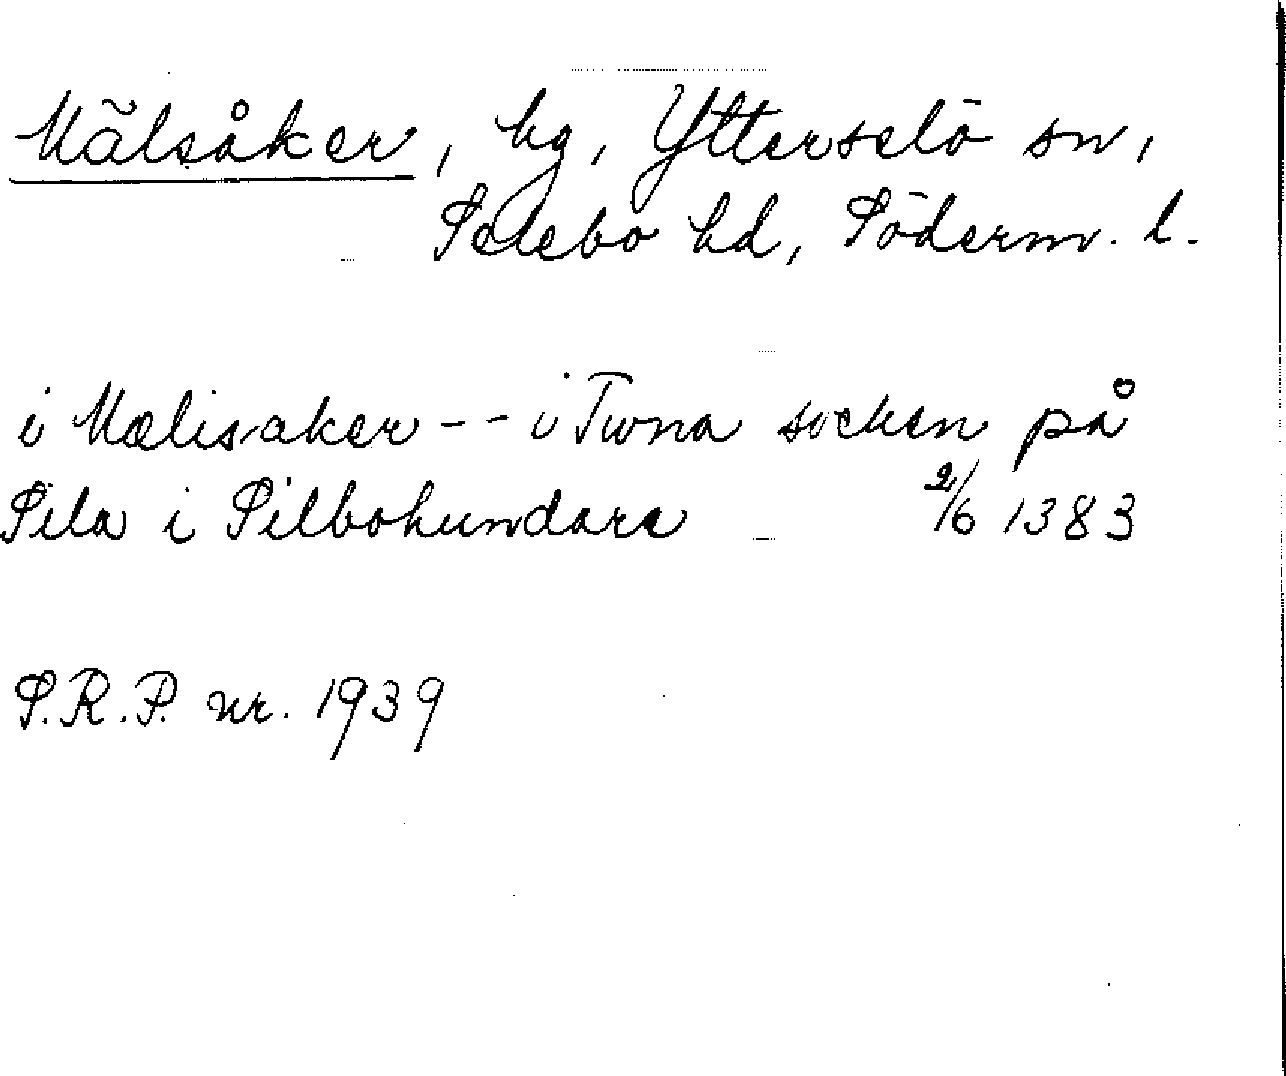 Mälsåker, hg, Ytterselö sn,
Selebo hd, Söderm. l.
i Mælisaker -- i Twna socken på
Sila i Silbohundare 2/6 1383
S.R.P. nr. 1939